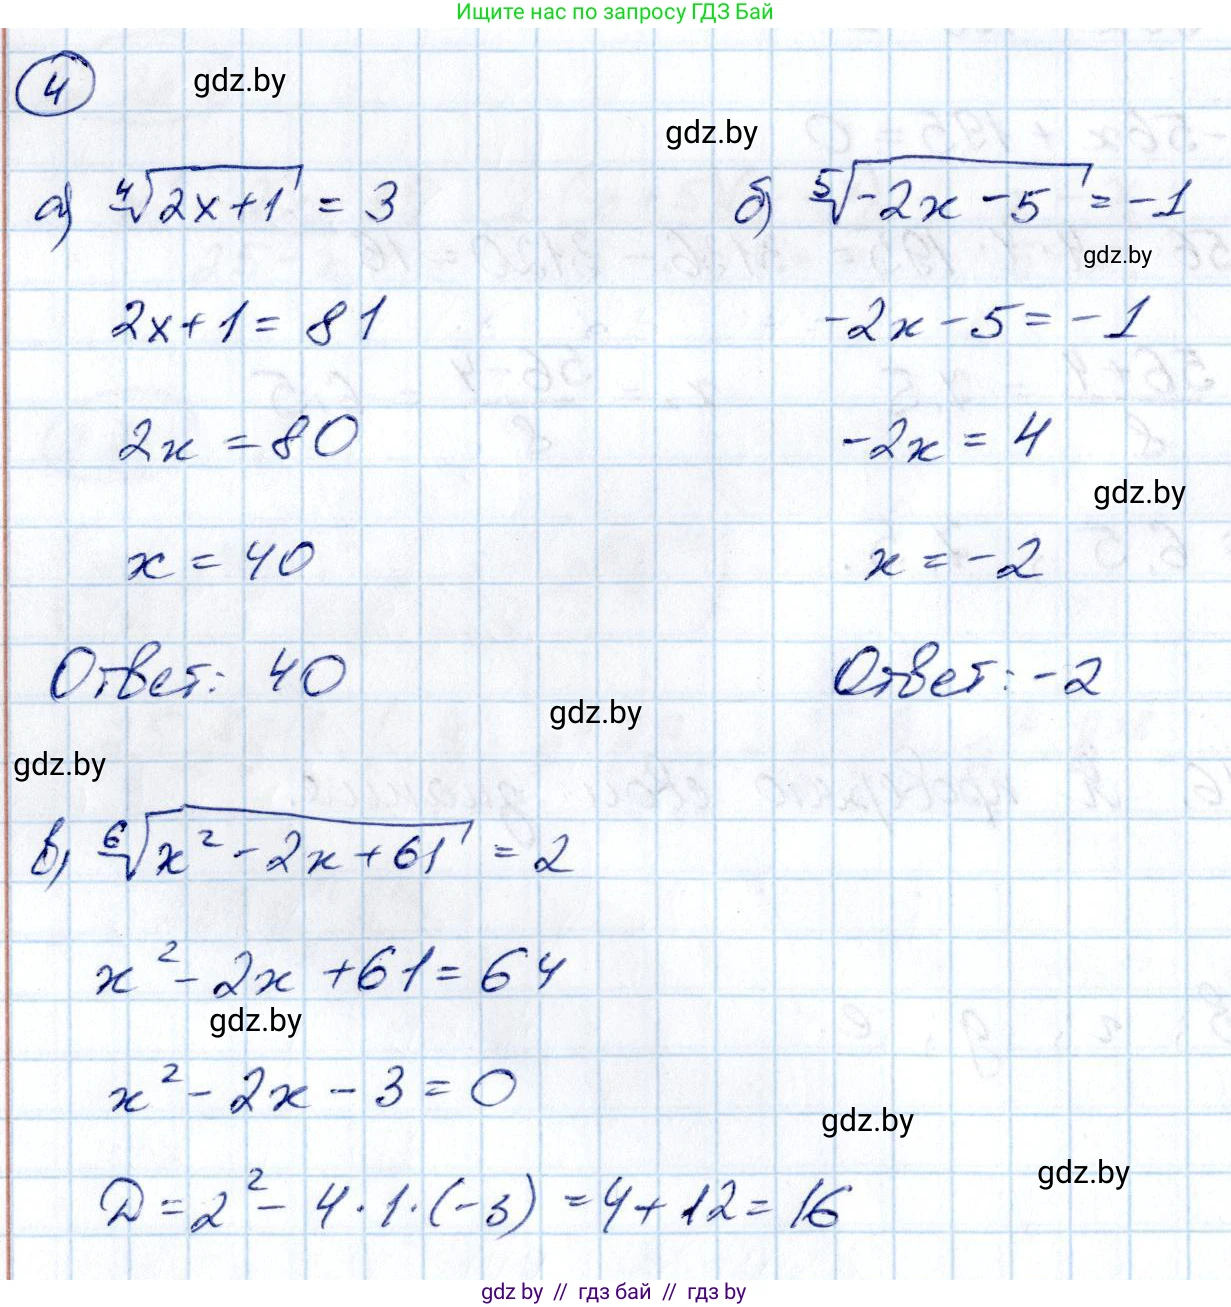 Ищите нас по запросу ГДЗ Бай
4
gdz.by
gdz.by
а) ⁴√(2x+1) = 3
2x+1 = 81
2x = 80
x = 40
Ответ: 40
б) ⁵√(-2x-5) = -1
gdz.by
-2x-5 = -1
-2x = 4
gdz.by
x = -2
Ответ: -2
gdz.by
gdz.by
в) ⁶√(x²-2x+61) = 2
x²-2x+61 = 64
gdz.by
x²-2x-3=0
gdz.by
gdz.by
D = 2²-4·1·(-3) = 4+12 = 16
gdz.by // гдз бай // гдз by